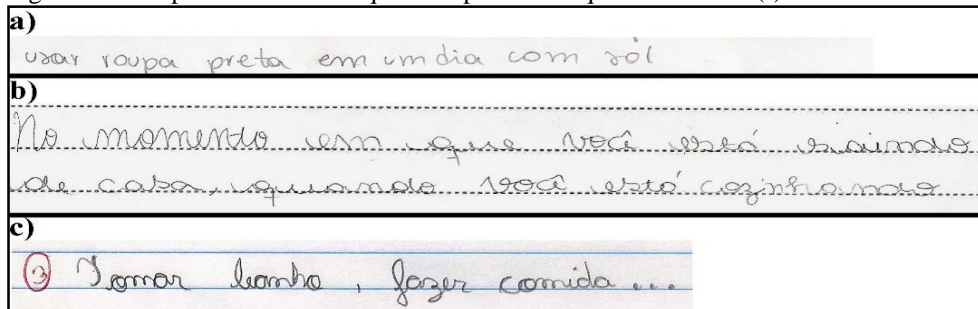 a)
usar roupa preta em um dia com sól
b)
No momento em que você está saindo
de casa, quando você está cozinhando
c)
3 Tomar banho, fazer comida...